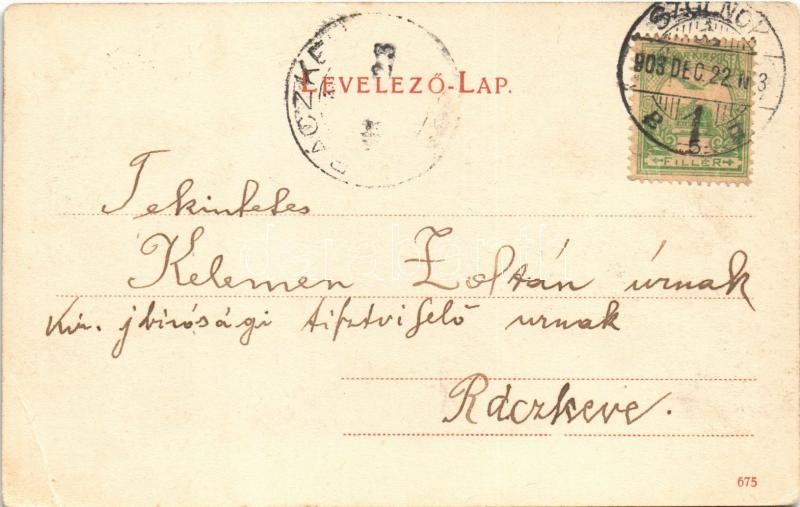 LEVELEZŐ-LAP.
RÁCZKE
23
SZOLNOK
903 DEC. 22
5
FILLÉR
Tekintetes
Kelemen Zoltán úrnak
kir. jbirósági tisztviselő urnak
Ráczkeve.
darabanth
675